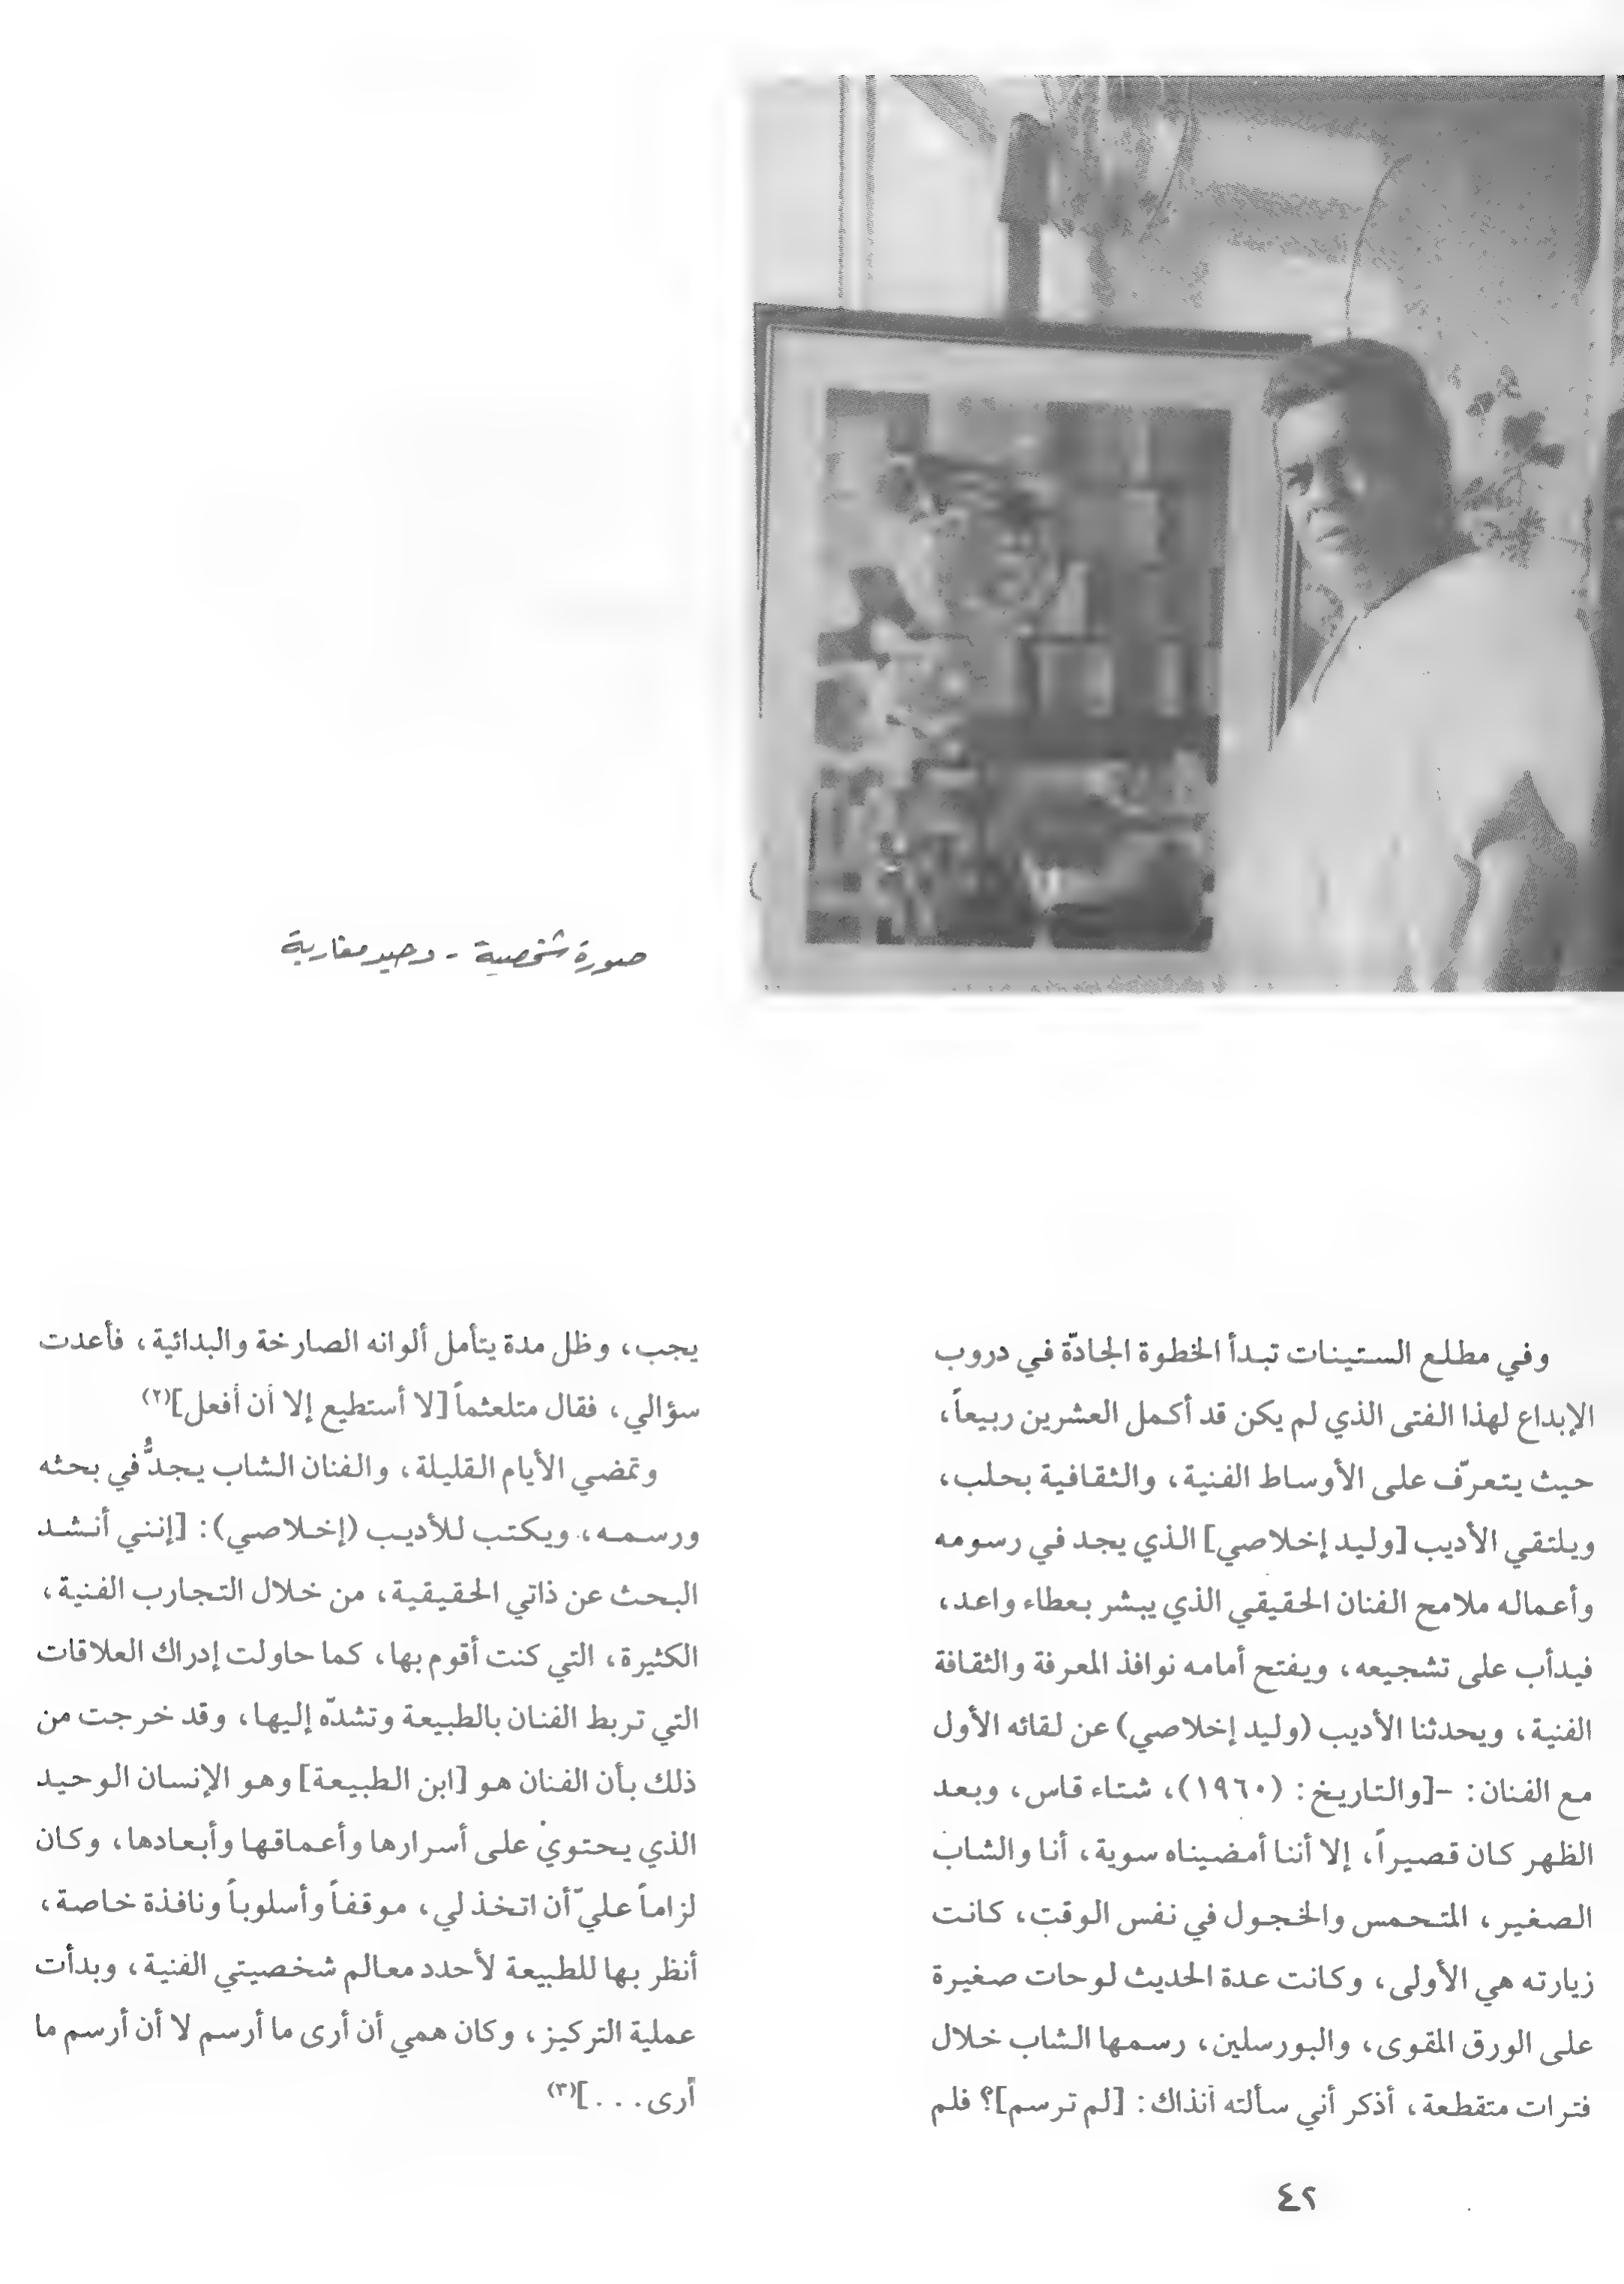 صورة شخصية - وحيد مغاربة
وفي مطلع الستينات تبدأ الخطوة الجادّة في دروب
الإبداع لهذا الفتى الذي لم يكن قد أكمل العشرين ربيعاً،
حيث يتعرّف على الأوساط الفنية، والثقافية بحلب،
ويلتقي الأديب [وليد إخلاصي] الذي يجد في رسومه
وأعماله ملامح الفنان الحقيقي الذي يبشر بعطاء واعد،
فيدأب على تشجيعه، ويفتح أمامه نوافذ المعرفة والثقافة
الفنية، ويحدثنا الأديب (وليد إخلاصي) عن لقائه الأول
مع الفنان: -[والتاريخ: (١٩٦٠)، شتاء قاس، وبعد
الظهر كان قصيراً، إلا أننا أمضيناه سوية، أنا والشاب
الصغير، المتحمس والخجول في نفس الوقت، كانت
زيارته هي الأولى، وكانت عدة الحديث لوحات صغيرة
على الورق المقوى، والبورسلين، رسمها الشاب خلال
فترات متقطعة، أذكر أني سألته آنذاك: [لم ترسم]؟ فلم
يجب، وظل مدة يتأمل ألوانه الصارخة والبدائية، فأعدت
سؤالي، فقال متلعثماً [لا أستطيع إلا أن أفعل](٢)
وتمضي الأيام القليلة، والفنان الشاب يجدُّ في بحثه
ورسمه، ويكتب للأديب (إخلاصي): [إنني أنشد
البحث عن ذاتي الحقيقية، من خلال التجارب الفنية،
الكثيرة، التي كنت أقوم بها، كما حاولت إدراك العلاقات
التي تربط الفنان بالطبيعة وتشدّه إليها، وقد خرجت من
ذلك بأن الفنان هو [ابن الطبيعة] وهو الإنسان الوحيد
الذي يحتوي على أسرارها وأعماقها وأبعادها، وكان
لزاماً عليّ أن اتخذ لي، موقفاً وأسلوباً ونافذة خاصة،
أنظر بها للطبيعة لأحدد معالم شخصيتي الفنية، وبدأت
عملية التركيز، وكان همي أن أرى ما أرسم لا أن أرسم ما
أرى. . . ](٣)
٤٢